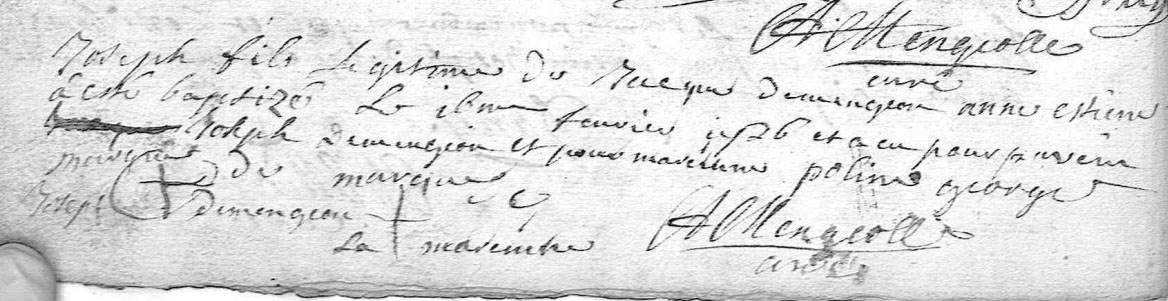 A Mengeolle
curé
Joseph fils Legitime de Jacque demengeon anne estiene
à esté baptizé Le feuvrier et a eu pour parein
Joseph demengeon et pour mareinne poline george
marque de marque
Joseph demengeon
La mareinne
A Mengeolle
curé